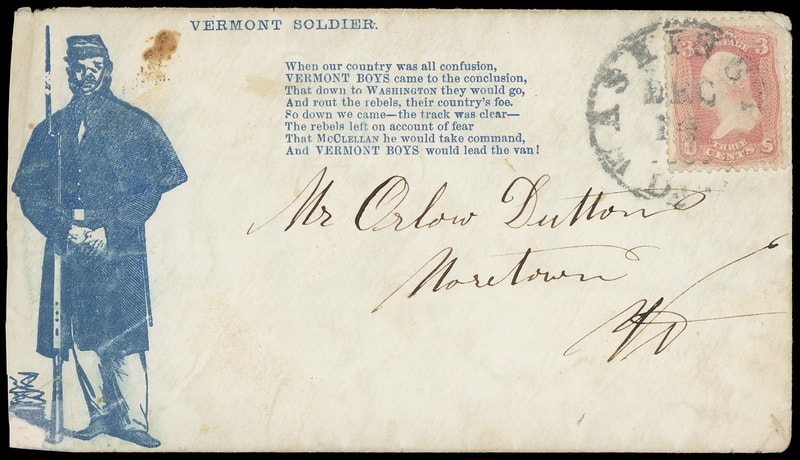 VERMONT SOLDIER.
When our country was all confusion,
VERMONT BOYS came to the conclusion,
That down to WASHINGTON they would go,
And rout the rebels, their country's foe.
So down we came—the track was clear—
The rebels left on account of fear
That MCCLELLAN he would take command,
And VERMONT BOYS would lead the van!
Mr Orlow Dutton
Moretown
Vt
DEC
3 3
U S
THREE
CENTS